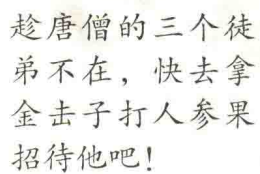 趁唐僧的三个徒
弟不在，快去拿
金击子打人参果
招待他吧！